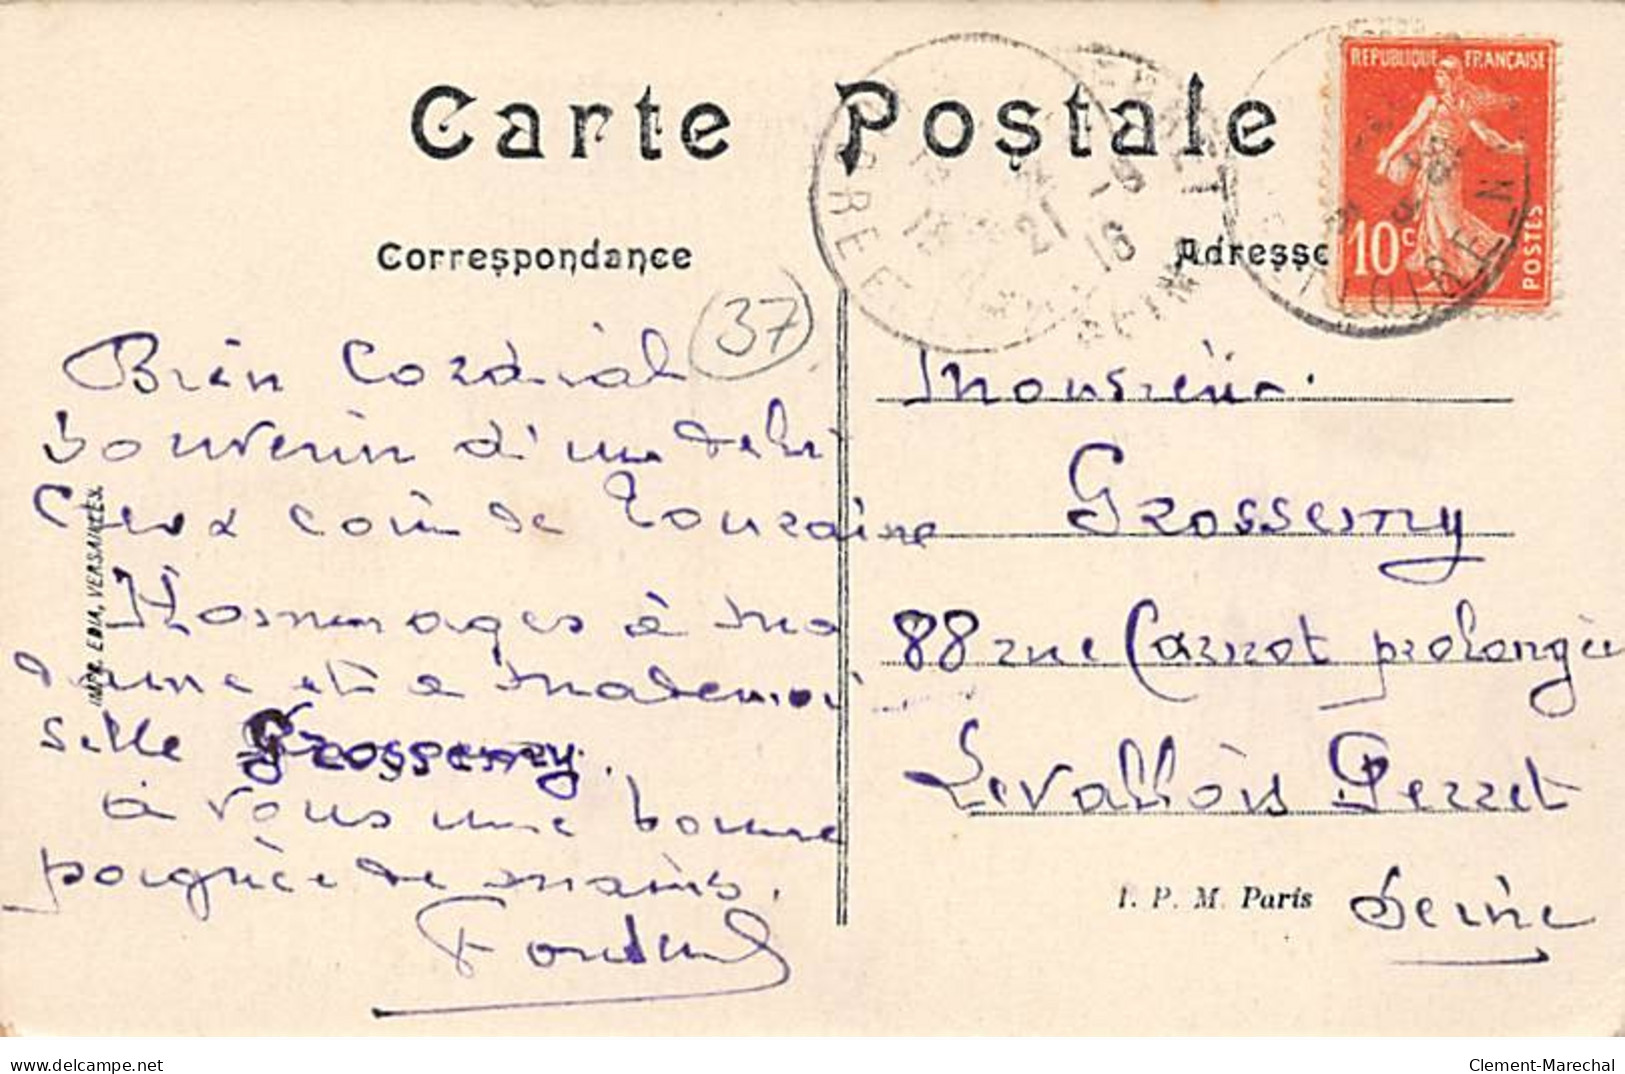 Carte Postale
Correspondance
Adresse
REPUBLIQUE FRANÇAISE
10c
POSTES
37
Bien Cordial
Souvenir d'un deli
cieux coin de Touraine
Hommages à Ma
dame et à Mademoi
selle Grossemy.
à vous une bonne
poignée de mains.
Monsieur
Grossemy
88 rue Carnot prolongée
Levallois Perret
Seine
I. P. M. Paris
IMPR. EDIA, VERSAILLES.
delcampe.net
Clement-Marechal